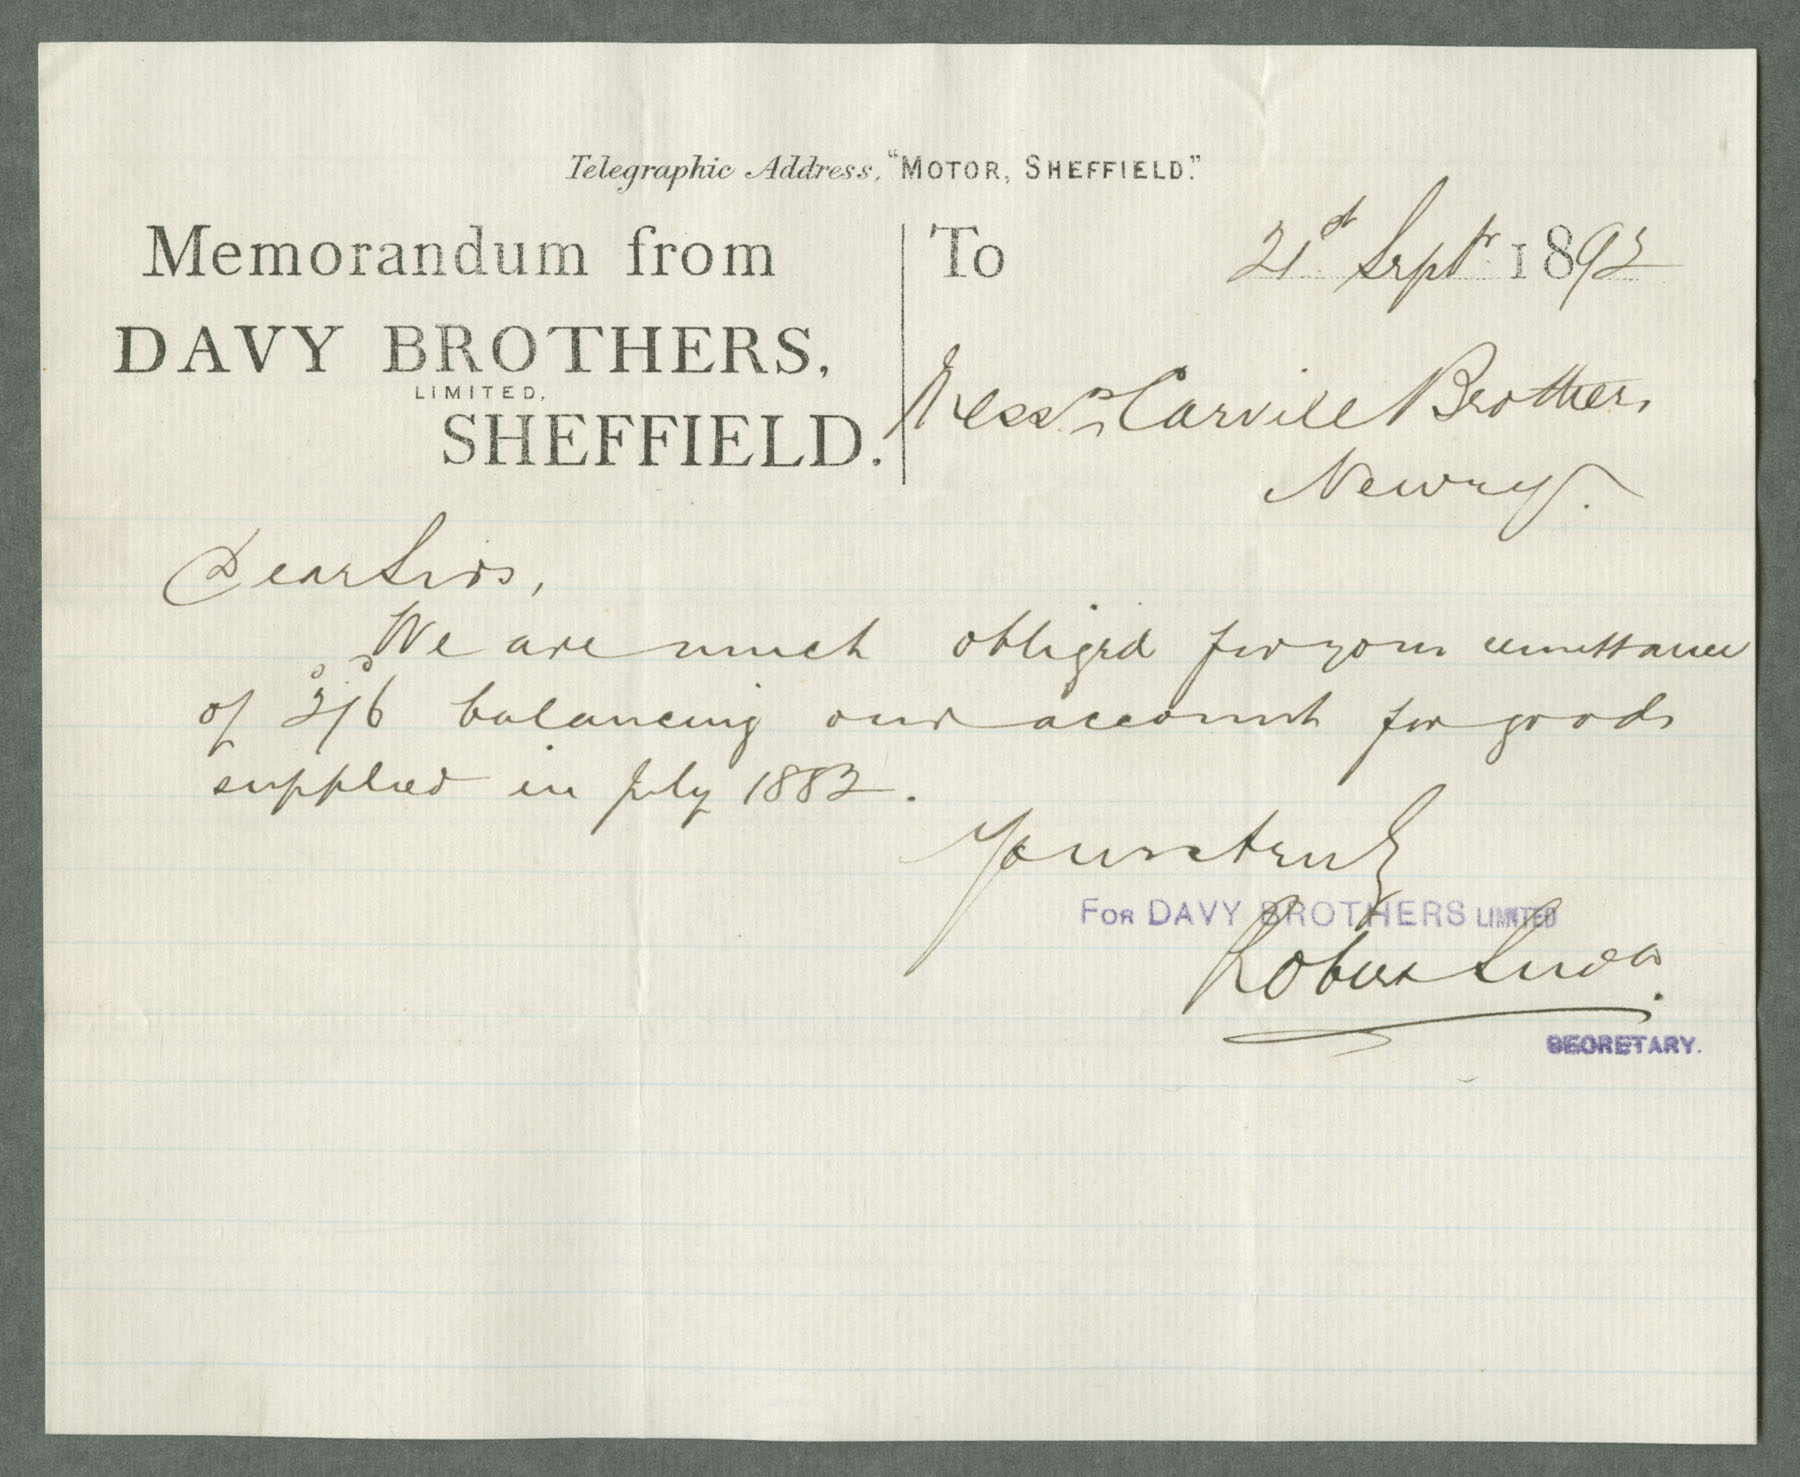 Telegraphic Address, "MOTOR, SHEFFIELD."
Memorandum from
DAVY BROTHERS,
LIMITED,
SHEFFIELD.
To 21st Septr 1892
Messrs Carvill Brothers
Newry.
Dear Sirs,
We are much obliged for your remittance
of 2s/6d balancing our account for goods
supplied in July 1882.
Yours truly
FOR DAVY BROTHERS LIMITED
Robert
SECRETARY.